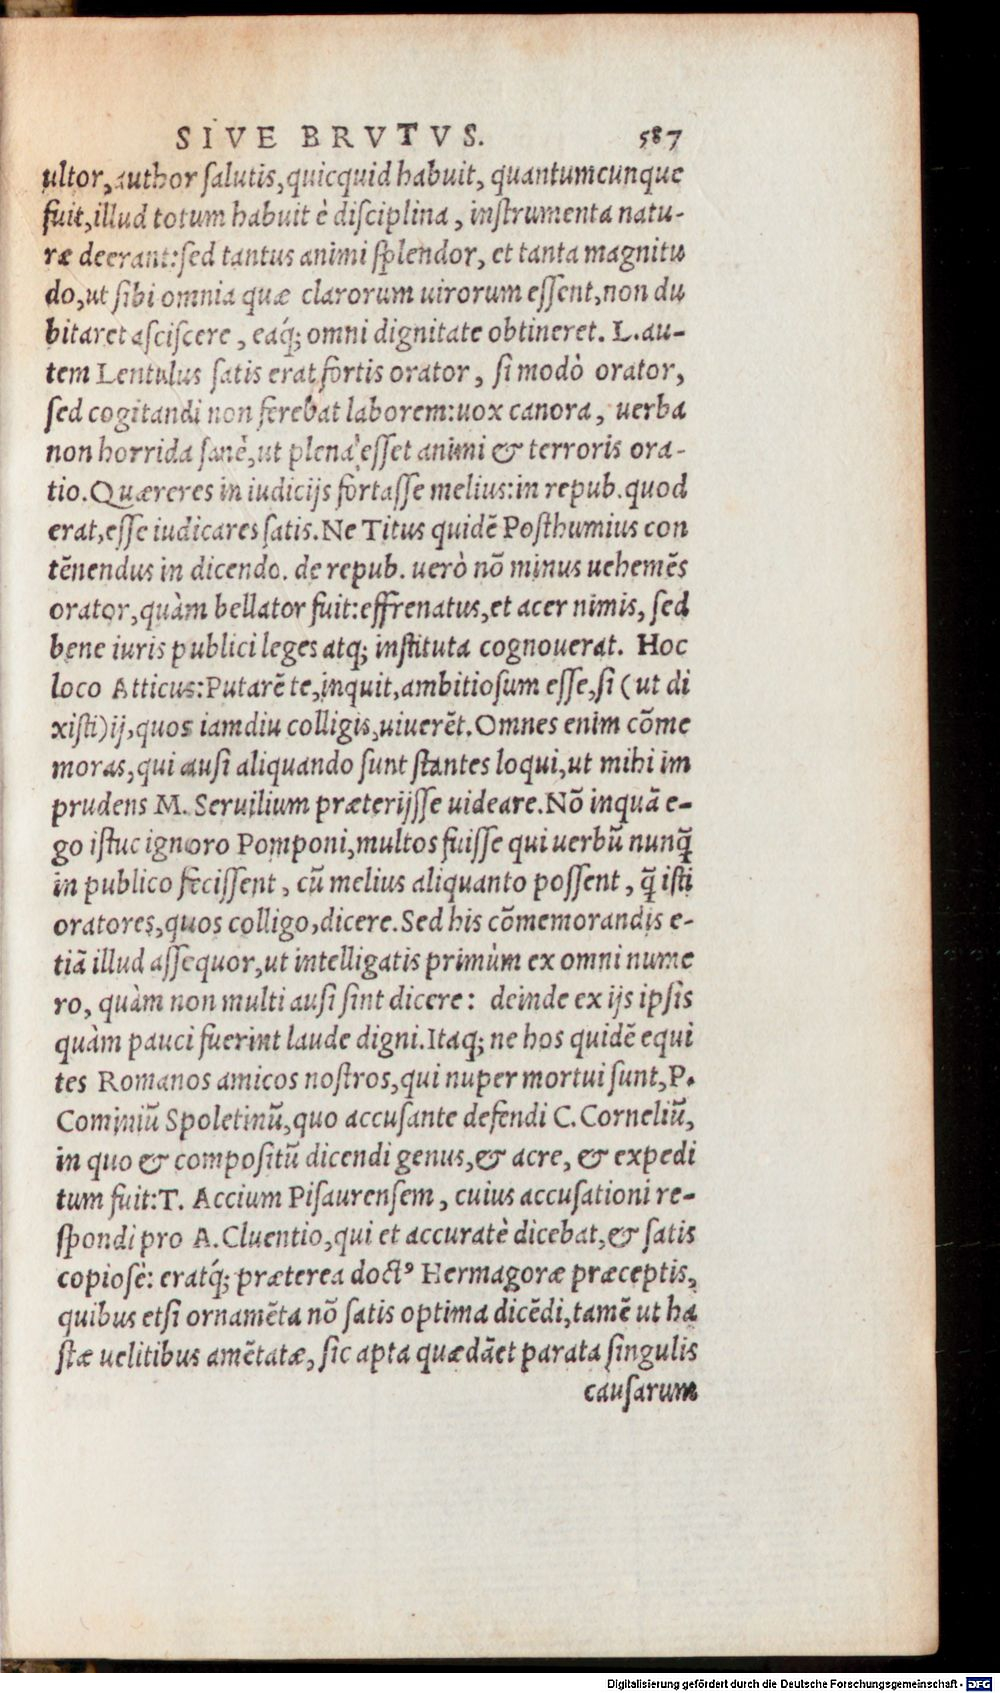 SIVE BRVTVS. 587
ultor, author salutis, quicquid habuit, quantumcunque
fuit, illud totum habuit è disciplina, instrumenta natu-
ræ deerant: sed tantus animi splendor, et tanta magnitu
do, ut sibi omnia quæ clarorum uirorum essent, non du
bitaret asciscere, eaq́; omni dignitate obtineret. L. au-
tem Lentulus satis erat fortis orator, si modò orator,
sed cogitandi non ferebat laborem: uox canora, uerba
non horrida sanè, ut plena esset animi & terroris ora-
tio. Quæreres in iudicijs fortasse melius: in repub. quod
erat, esse iudicares satis. Ne Titus quidē Posthumius con
tēnendus in dicendo. de repub. uerò nō minus uehemēs
orator, quàm bellator fuit: effrenatus, et acer nimis, sed
bene iuris publici leges atq; instituta cognouerat. Hoc
loco Atticus: Putarē te, inquit, ambitiosum esse, si (ut di
xisti) ij, quos iamdiu colligis, uiuerēt. Omnes enim cōme
moras, qui ausi aliquando sunt stantes loqui, ut mihi im
prudens M. Seruilium præterijsse uideare. Nō inquā e-
go istuc ignoro Pomponi, multos fuisse qui uerbū nunq̄
in publico fecissent, cū melius aliquanto possent, q̄ isti
oratores, quos colligo, dicere. Sed his cōmemorandis e-
tiā illud assequor, ut intelligatis primùm ex omni nume
ro, quàm non multi ausi sint dicere: deinde ex ijs ipsis
quàm pauci fuerint laude digni. Itaq; ne hos quidē equi
tes Romanos amicos nostros, qui nuper mortui sunt, P.
Cominiū Spoletinū, quo accusante defendi C. Corneliū,
in quo & compositū dicendi genus, & acre, & expedi
tum fuit: T. Accium Pisaurensem, cuius accusationi re-
spondi pro A. Cluentio, qui et accuratè dicebat, & satis
copiosè: eratq́; præterea doctꝰ Hermagoræ præceptis,
quibus etsi ornamēta nō satis optima dicēdi, tamē ut ha
stæ uelitibus amētatæ, sic apta quædā et parata singulis
causarum
Digitalisierung gefördert durch die Deutsche Forschungsgemeinschaft - DFG